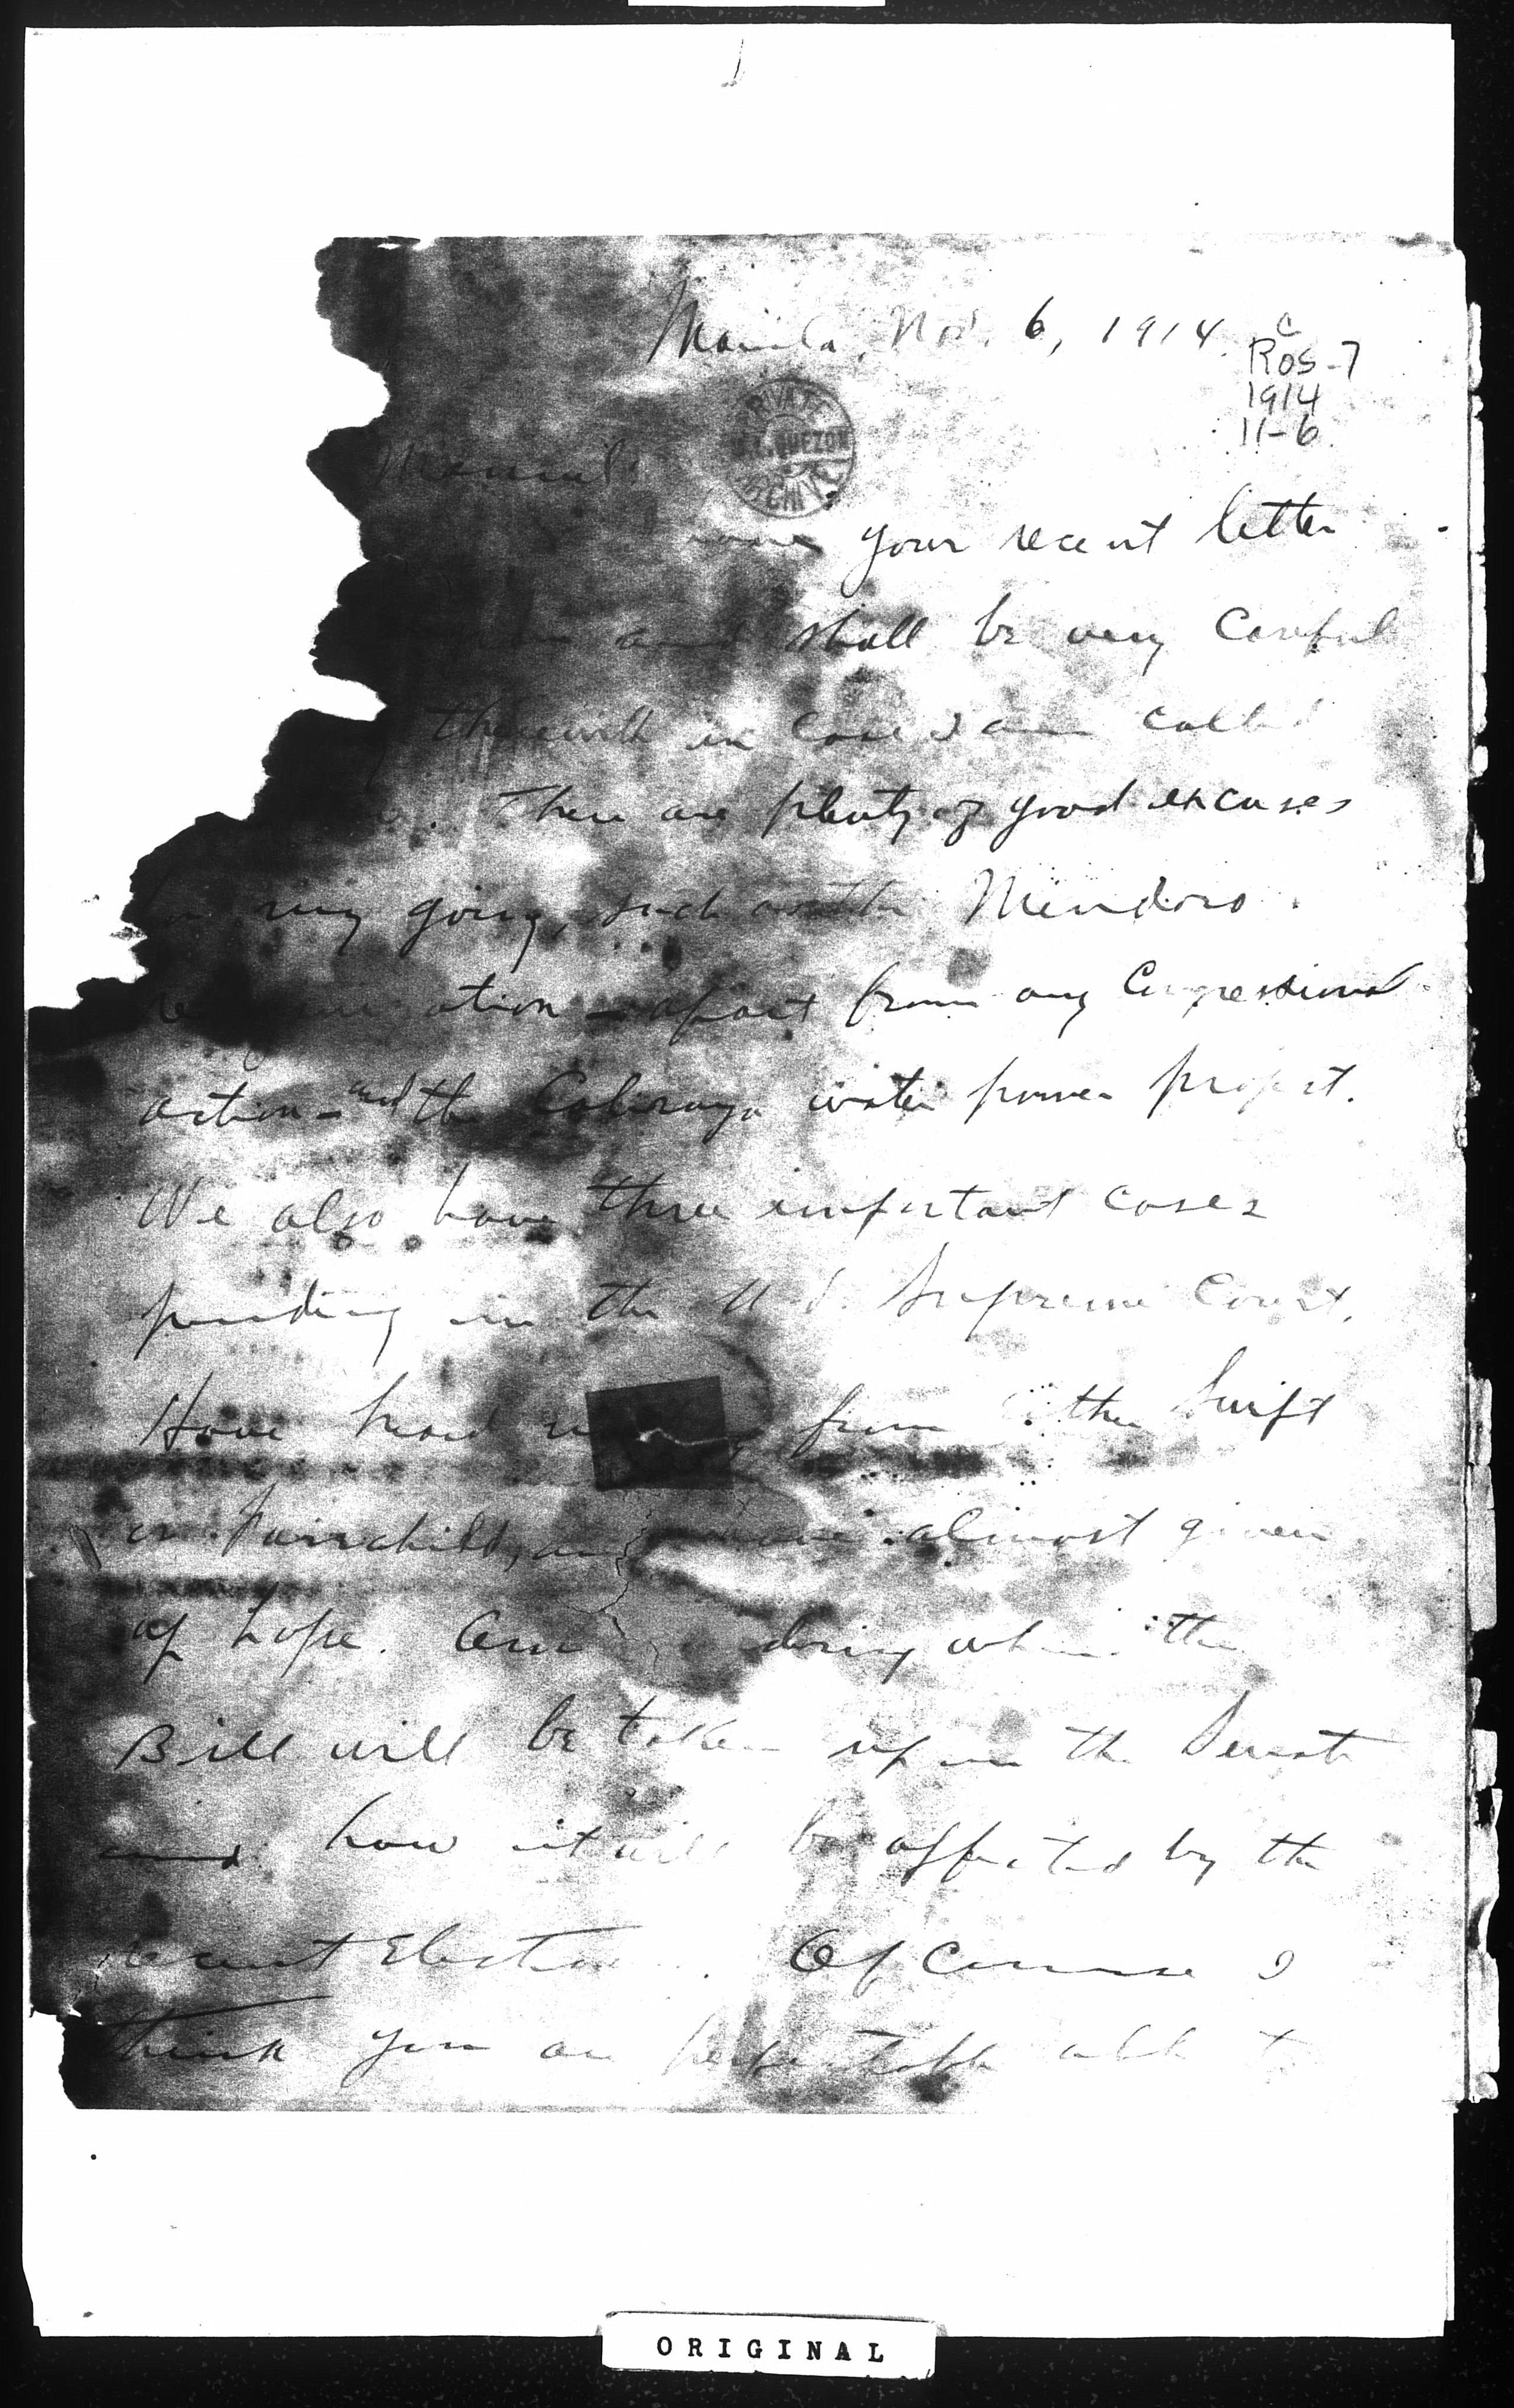 Manila, Nov. 6, 1914.
C
ROS-7
1914
11-6
PRIVATE
M.L. QUEZON
ARCHIVE
Manuel:
your recent letter
and shall be very careful
therewith in case I am called
There are plenty of good excuses
for my going, such as the Mindoro
reorganization - apart from any Congressional
action - and the Caliraya water power project.
We also have three important cases
pending in the U.S. Supreme Court.
Have heard from either Swift
or Fairchild, and have almost given
up hope. Am when the
Bill will be taken up in the Senate
and how it will be affected by the
recent Election. Of course I
think you are able to
ORIGINAL